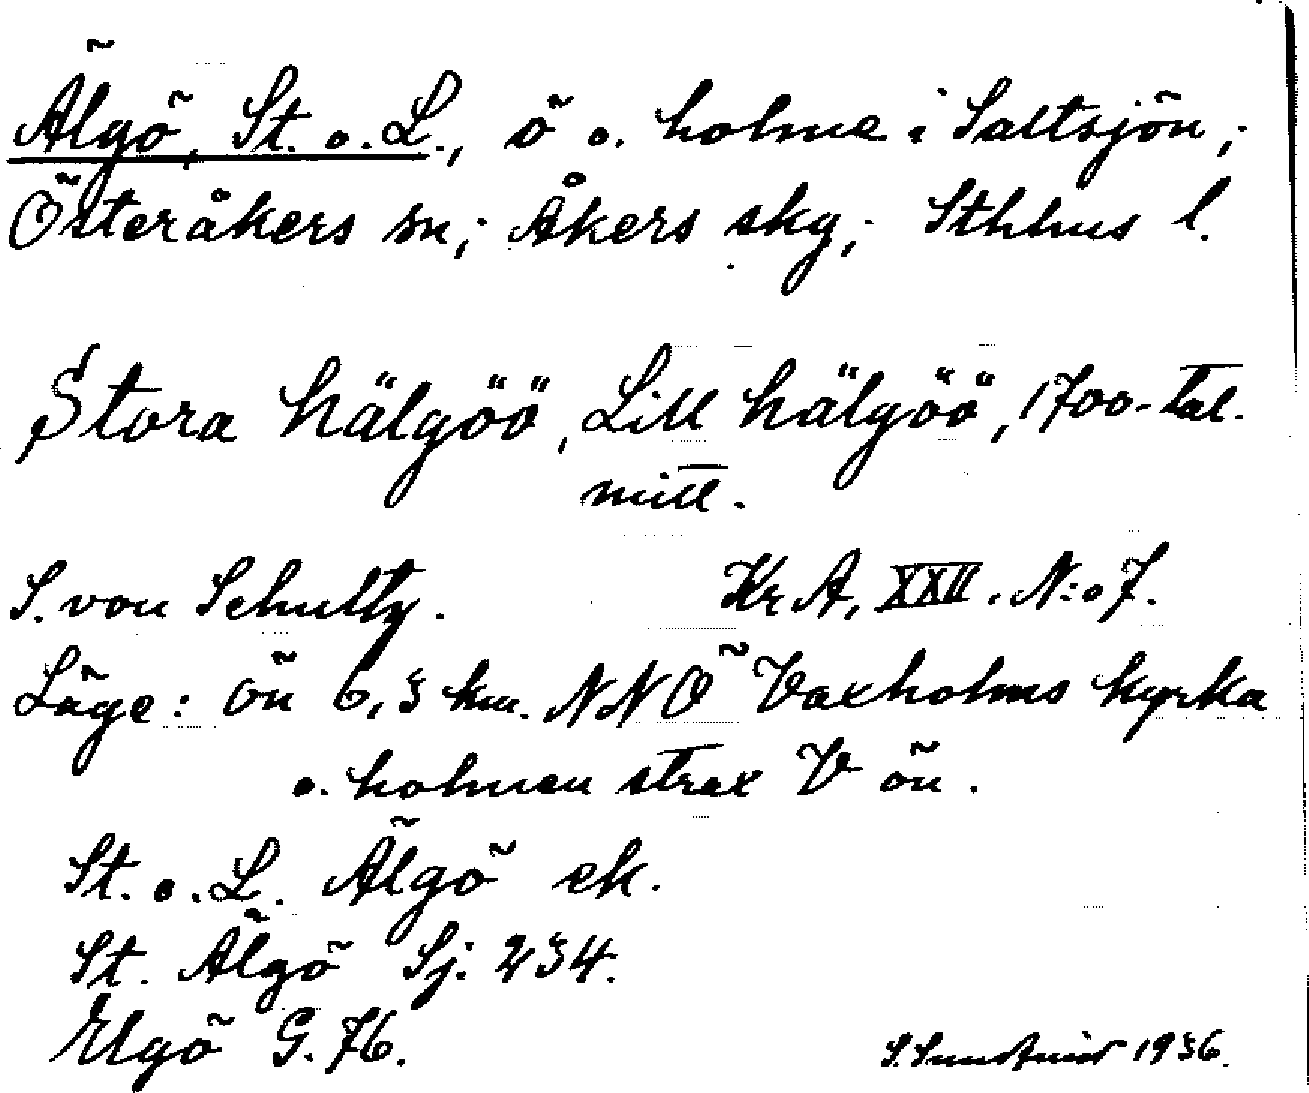 Älgö, St. o. L., ö o. holme i Saltsjön;
Österåkers sn; Åkers skg; Sthlms l.
Stora hälgöö, Lill hälgöö, 1700-tal.
mitt.
S. von Schultz. Kr A, XXII. N:o 7.
Läge: ön 6,3 km. NNÖ Vaxholms kyrka
o. holmen strax V ön.
St. o. L. Älgö ek.
St. Älgö Sj. 234.
Elgö G. 76.
1936.